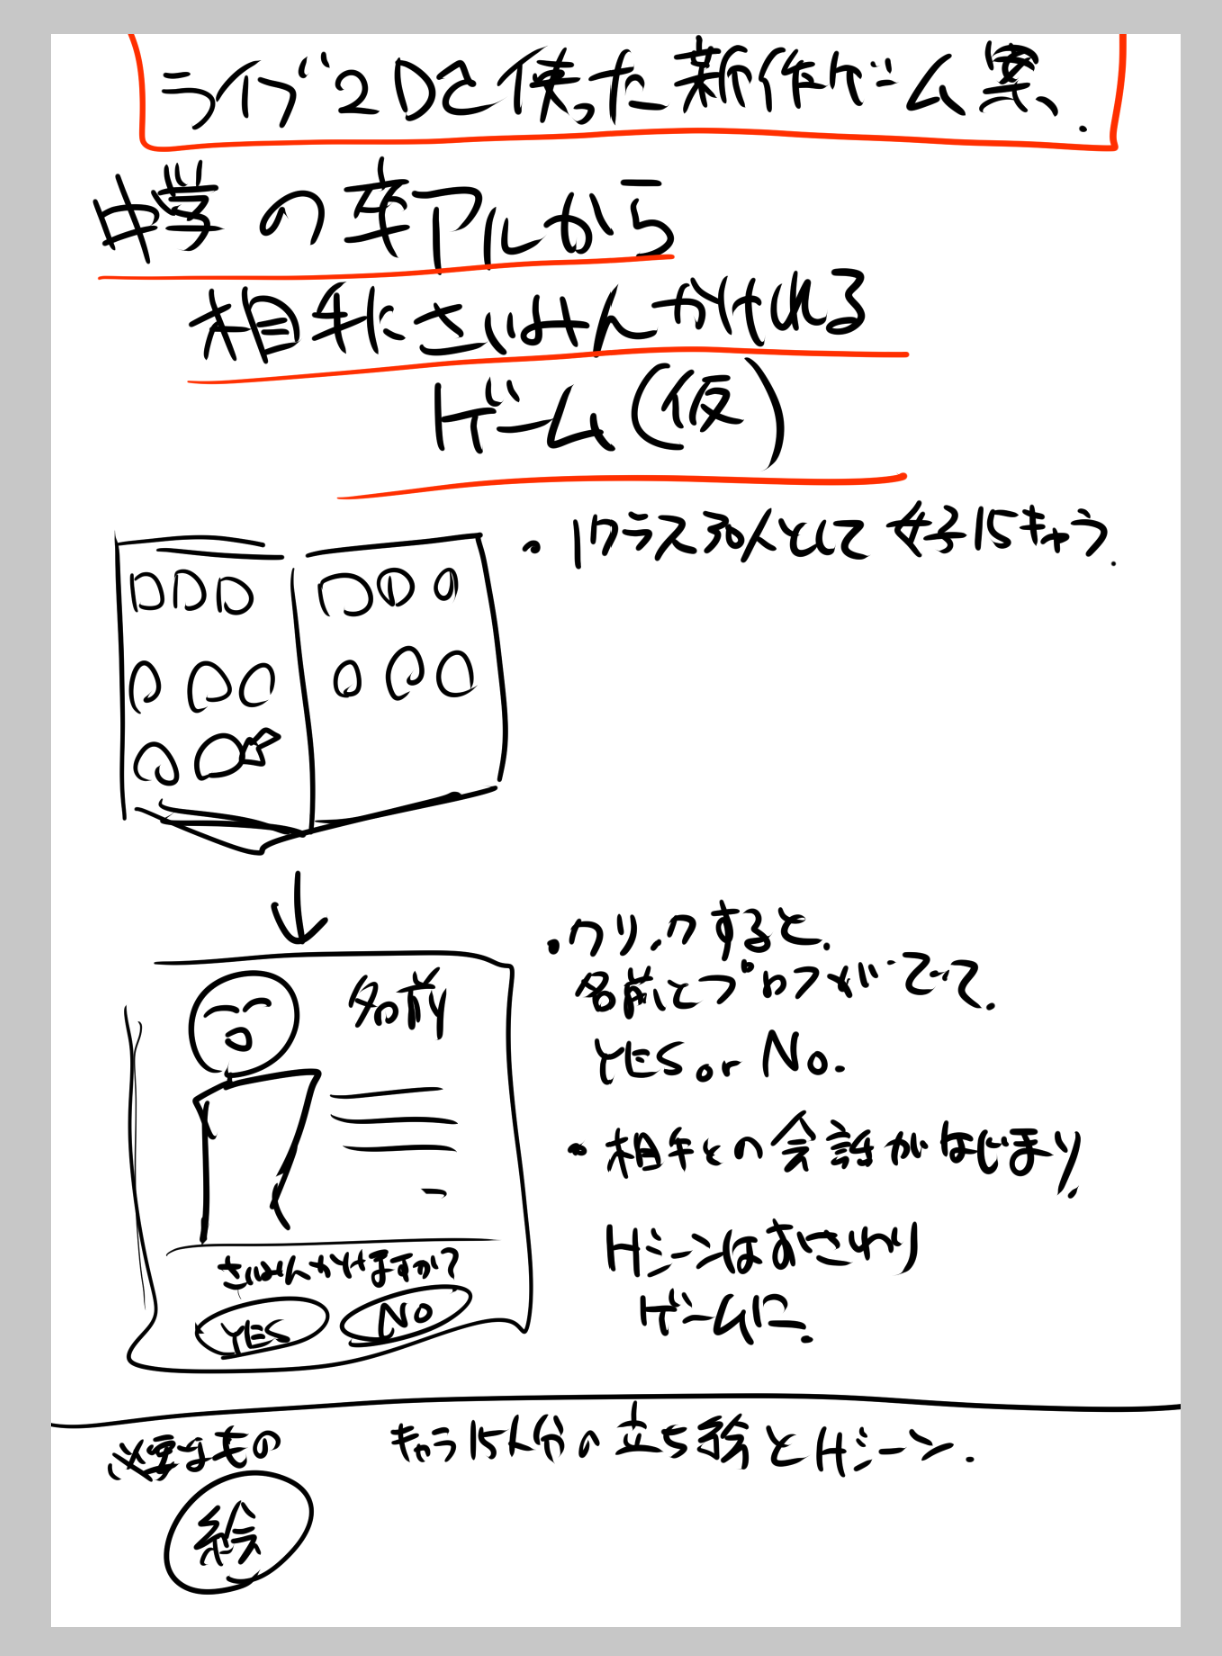 ライブ2Dを使った新作ゲーム案、
中学の卒アルから
相手にさいみんかけれる
ゲーム(仮)
・1クラス30人として女子15キャラ.
・クリックすると、
名前とプロフがでて、
YES or No.
・相手との会話がはじまり、
Hシーンはおさわり
ゲームに。
名前
さいみんかけますか?
YES
NO
必要なもの
キャラ15人分の立ち絵とHシーン.
絵